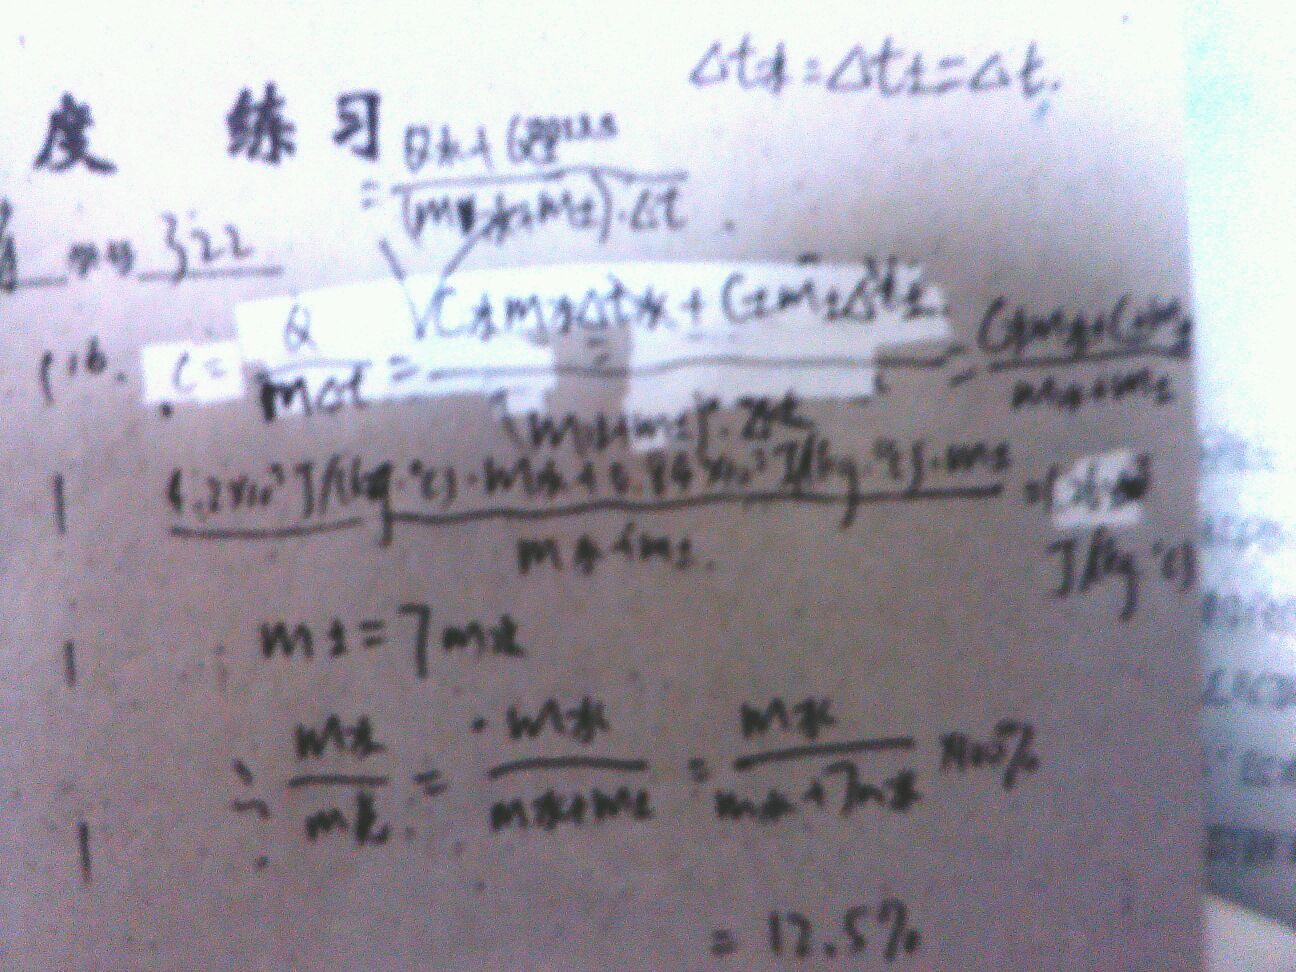 Δt水=Δt土=Δt.
度 练习
= Q水+Q土 / (m水+m土)·Δt
学号 322
C= Q/mΔt = C水m水Δt水+C土m土Δt土 / (m水+m土)·Δt = C水m水+C土m土 / m水+m土
4.2×10³J/(kg·℃)·m水+0.84×10³J/(kg·℃)·m土 / m水+m土. =
J/(kg·℃)
m土=7m水
∴ m水/m总 = m水/m水+m土 = m水/m水+7m水 ×100%
=12.5%